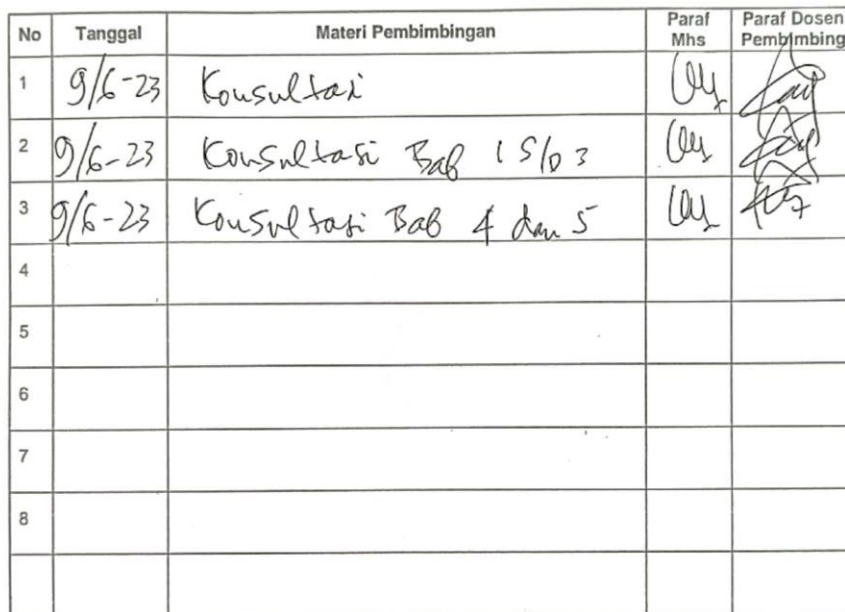 No Tanggal Materi Pembimbingan Paraf Mhs Paraf Dosen Pembimbing
1 9/6-23 Konsultasi
2 9/6-23 Konsultasi Bab 1 S/D 3
3 9/6-23 Konsultasi Bab 4 dan 5
4
5
6
7
8